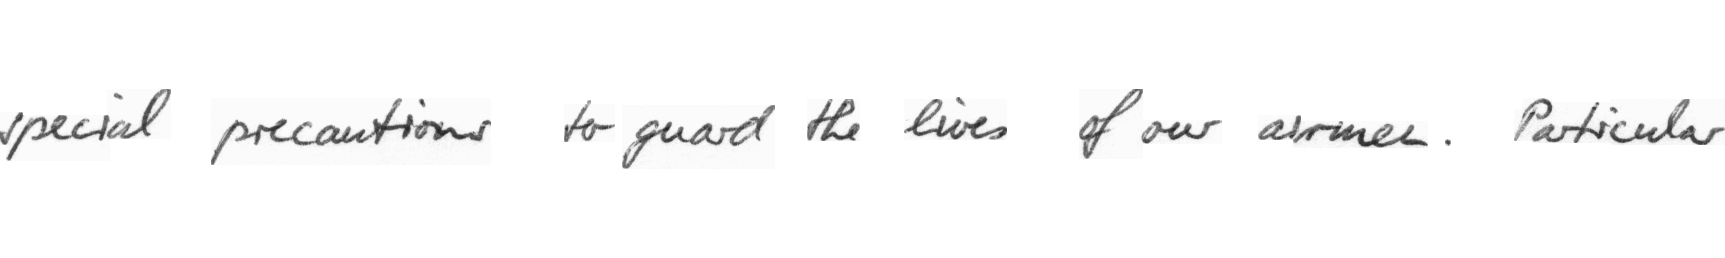 special precautions to guard the lives of our airmen. Particular